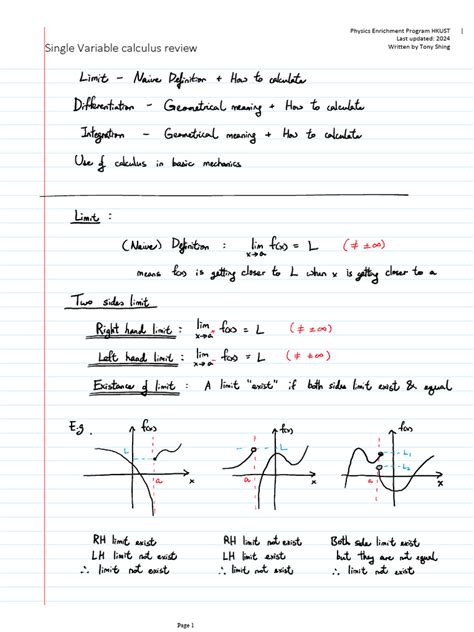 Physics Enrichment Program HKUST
Last updated: 2024
Written by Tony Shing
Single Variable calculus review
Limit - Naive Definition + How to calculate
Differentiation - Geometrical meaning + How to calculate
Integration - Geometrical meaning + How to calculate
Use of calculus in basic mechanics
Limit :
(Naive) Definition : lim x→a f(x) = L (≠ ±∞)
means f(x) is getting closer to L when x is getting closer to a
Two sides limit
Right hand limit : lim f(x) = L (≠ ±∞)
Left hand limit : lim f(x) = L (≠ ±∞)
Existance of limit : A limit "exist" if both sides limit exist & equal
E.g.
f(x) L a x
f(x) L a x
f(x) L₁ L₂ a x
RH limit exist
LH limit exist
∴ limit not exist
RH limit not exist
LH limit exist
∴ limit not exist
Both side limit exist
but they are not equal
∴ limit not exist
Page 1